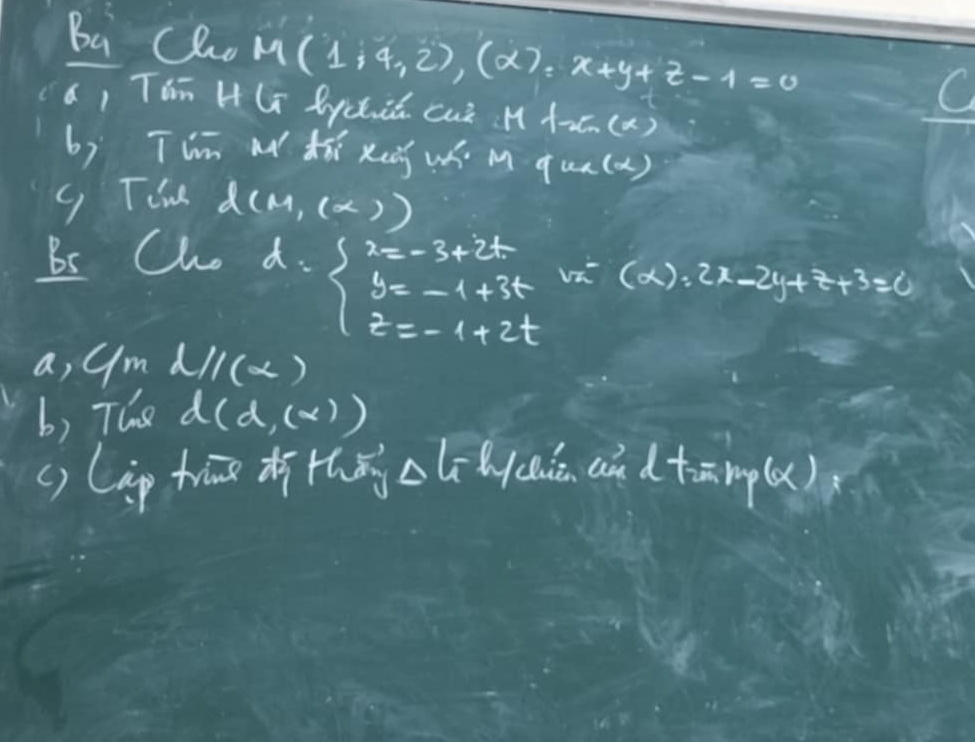 B4 Cho M(1; 4; 2), (α): x+y+z-1=0
a, Tìm H là h/chiếu của M trên (α)
b, Tìm M' đối xứng với M qua (α)
c, Tính d(M, (α))
B5 Cho d: { x=-3+2t
y=-1+3t và (α): 2x-2y+z+3=0
z=-1+2t
a, C/m d//(α)
b, Tính d(d,(α))
c, Lập trình đg thẳng Δ là h/chiếu của d trên mp(α).
C